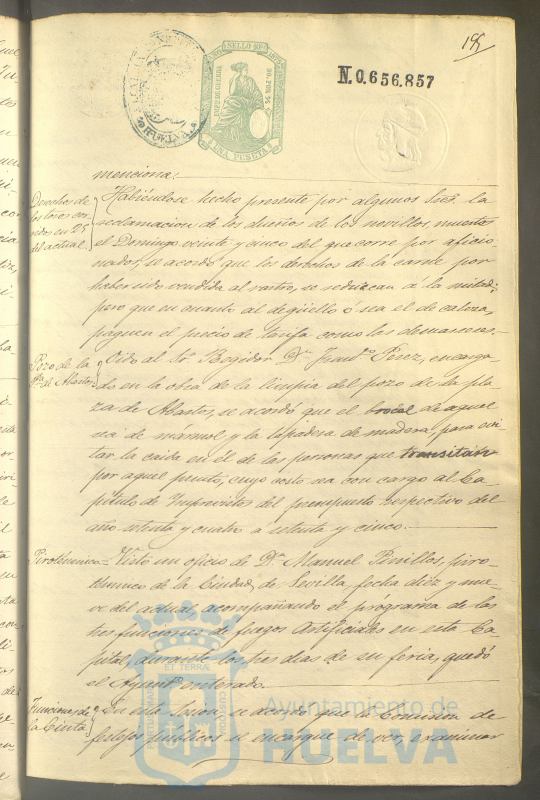 195
SELLO 10º
IMPTO DE GUERRA
UNA PESETA
N.0.656.857
HUELVA
menciona:
Derechos de los toros corridos en 25 del actual.
Habiéndose hecho presente por algunos Sres. la
reclamacion de los dueños de los novillos, muertos
el Domingo veinte y cinco del que corre por aficio-
nados, se acordó que los derechos de la carne por
haber sido vendida al rastro, se reduzcan á la mitad;
pero que en cuanto al degüello ó sea el de cabeza,
paguen el precio de tarifa como las demas reses.
Pozo de la plza. de Abastos
Oido al Sr. Regidor Dn. Franco. Perez, encarga-
do en la obra de la limpia del pozo de la pla-
za de Abastos, se acordó que el brocal de aquel
sea de mármol y la tapadera de madera, para evi-
tar la caida en él de las personas que transitan
por aquel punto, cuyo costo sea con cargo al Ca-
pítulo de Imprevistos del presupuesto respectivo del
año setenta y cuatro a setenta y cinco.
Pirotécnico
Visto un oficio de Dn. Manuel Pinillos, piro-
técnico de la Ciudad de Sevilla fecha diez y nue-
ve del actual, acompañando el prógrama de las
tres funciones de fuegos Artificiales en esta Ca-
pital, durante los tres dias de su feria, quedó
el Ayuntº enterado.
Funciones de la Cinta
En este se acordó que la Comision de
festejos públicos se encargue de ver, examinar
ET TERRÆ
Ayuntamiento de
HUELVA